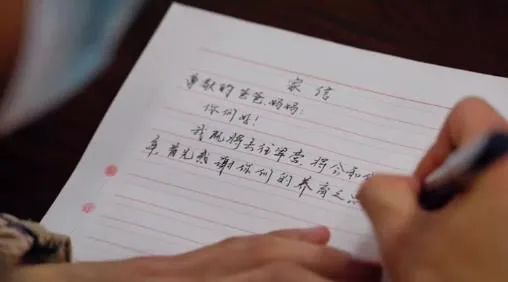 家信
尊敬的爸爸妈妈:
你们好!
我既将去往军营,将会和
首先感谢你们的养育之